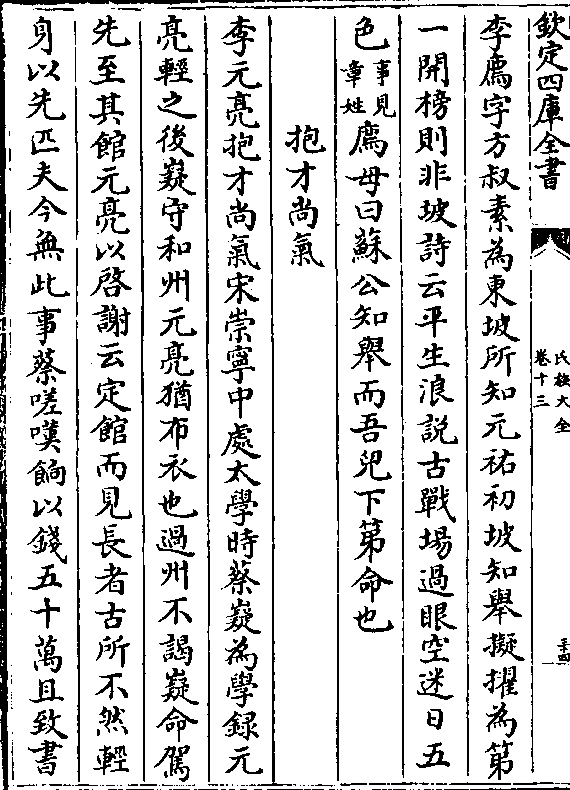 欽定四庫全書
氏族大全
卷十三
三十四
李廌字方叔素為東坡所知元祐初坡知舉擬擢為第
一開榜則非坡詩云平生浪說古戰場過眼空迷日五
色事見章姓廌母曰蘇公知舉而吾兒下第命也
抱才尚氣
李元亮抱才尚氣宋崇寧中處太學時蔡嶷為學録元
亮輕之後嶷守和州元亮猶布衣也過州不謁嶷命駕
先至其館元亮以啓謝云定館而見長者古所不然輕
身以先匹夫今無此事蔡嗟嘆餉以錢五十萬且致書